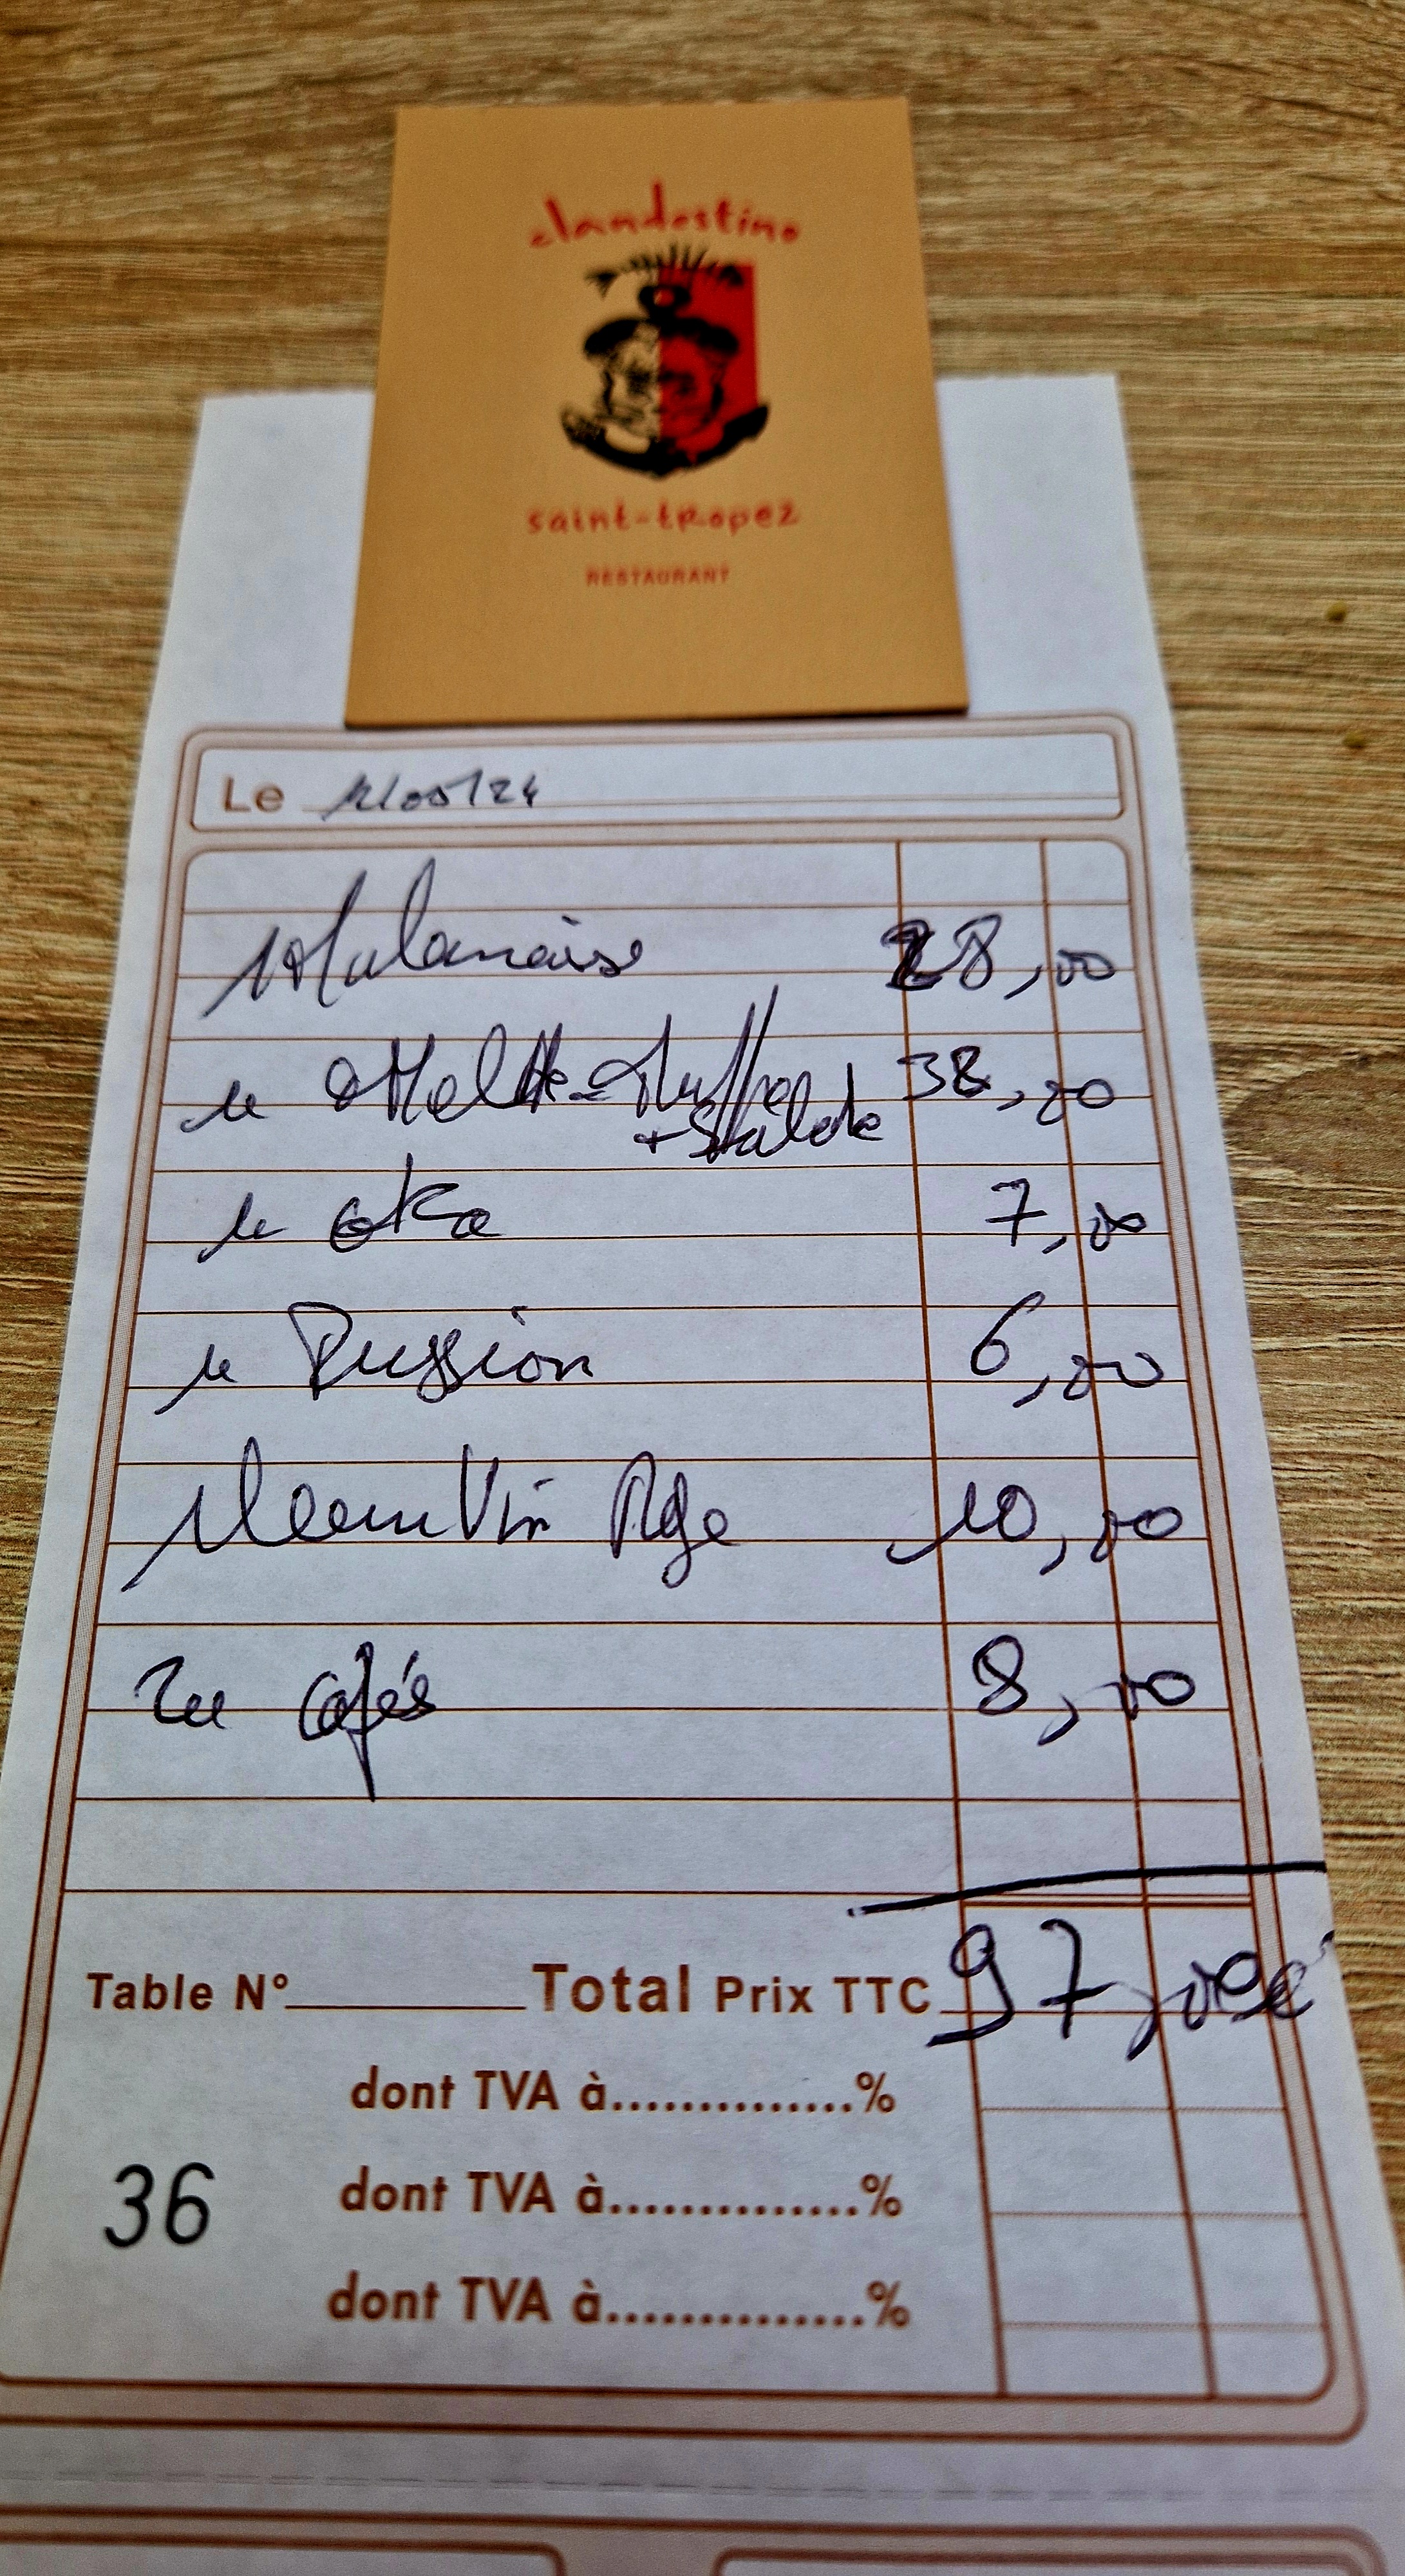 clandestino
saint-tropez
RESTAURANT
Le 12/05/24
1 Milanaise 28,00
1 Omelette Truffe 38,00
+ Salade
1 6,00
7,00
1 Pression 6,00
1 Vin Rge 10,00
2 cafés 8,00
Table N° Total Prix TTC 97,00€
dont TVA à..............%
36 dont TVA à..............%
dont TVA à..............%